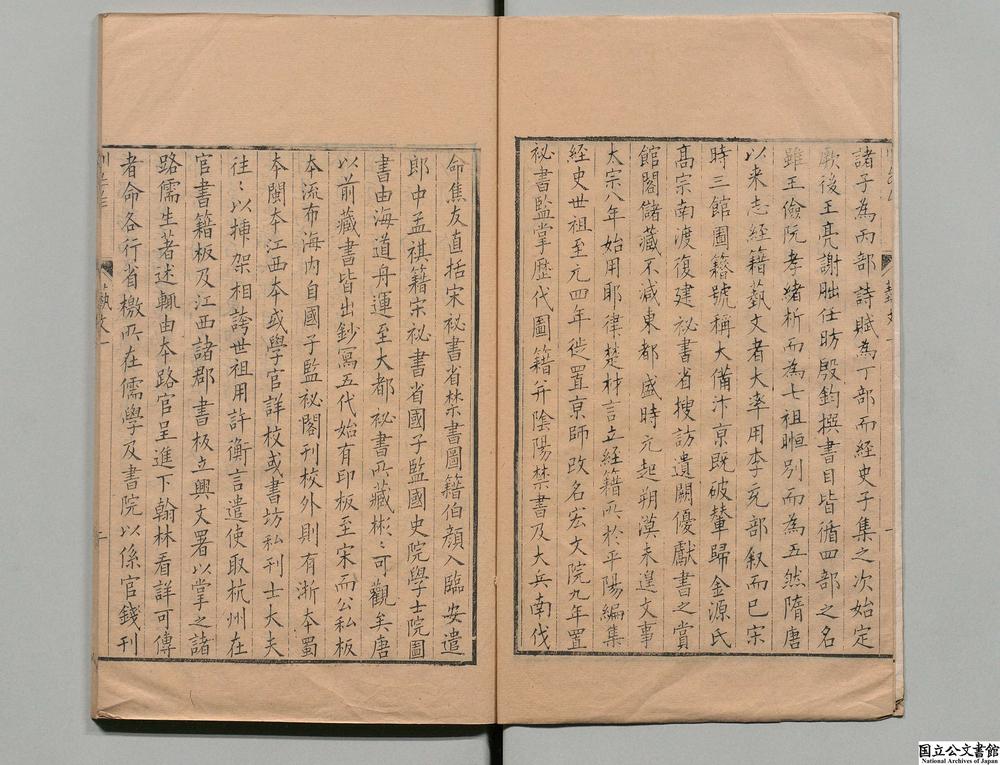 諸子為丙部詩賦為丁部而經史子集之次始定
厥後王亮謝朏任昉殷鈞撰書目皆循四部之名
雖王儉阮孝緒析而為七祖暅別而為五然隋唐
以来志經籍藝文者大率用李充部叙而已宋
時三館圖籍號稱大備汴京既破輦歸金源氏
高宗南渡復建祕書省搜訪遺闕優獻書之賞
館閣儲藏不減東都盛時元起朔漠未遑文事
太宗八年始用耶律楚材言立經籍所於平陽編集
經史世祖至元四年徙置京師改名宏文院九年置
祕書監掌歷代圖籍并陰陽禁書及大兵南伐
命焦友直括宋祕書省禁書圖籍伯顔入臨安遣
郎中孟祺籍宋祕書省國子監國史院學士院圖
書由海道舟運至大都祕書所藏彬〻可觀矣唐
以前藏書皆出鈔寫五代始有印板至宋而公私板
本流布海内自國子監祕閣刊校外則有浙本蜀
本閩本江西本或學官詳校或書坊私刊士大夫
往〻以揷架相誇世祖用許衡言遣使取杭州在
官書籍板及江西諸郡書板立興文署以掌之諸
路儒生著述輒由本路官呈進下翰林看詳可傳
者命各行省檄所在儒學及書院以係官錢刊
藝文一
國立公文書館
National Archives of Japan